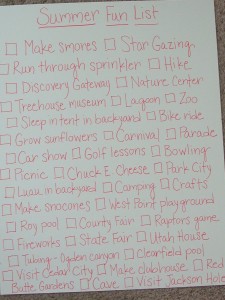 Summer Fun List
Make smores Star Gazing
Run through sprinkler Hike
Discovery Gateway Nature Center
Treehouse museum Lagoon Zoo
Sleep in tent in backyard Bike ride
Grow sunflowers Carnival Parade
Car show Golf lessons Bowling
Picnic Chuck E. Cheese Park City
Luau in backyard Camping Crafts
Make snocones West Point playground
Roy pool County Fair Raptors game
Fireworks State Fair Utah House
Tubing - Ogden canyon Clearfield pool
Visit Cedar City Make clubhouse Red
Butte Gardens Cave Visit Jackson Hole